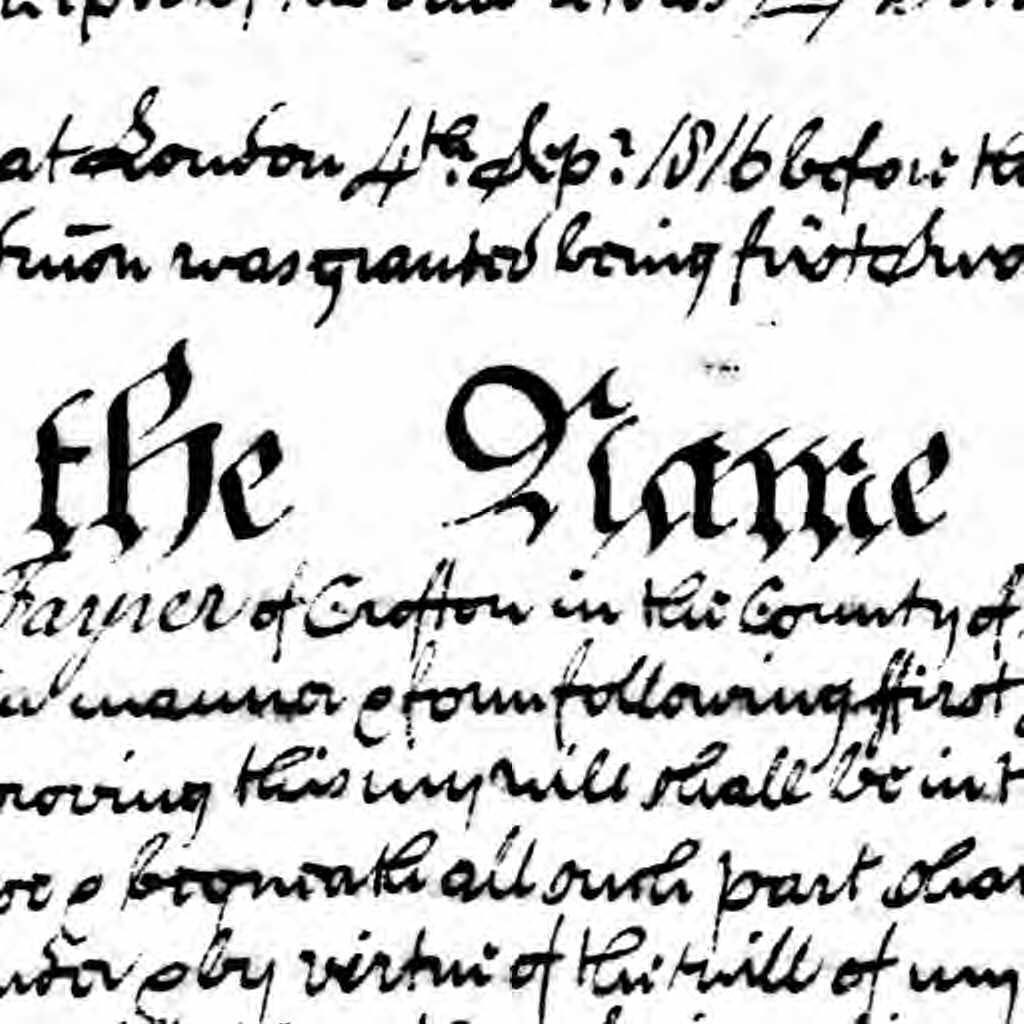 at London 4th. Sepr. 1816 before the
was granted being first Swo
the Name
Fayrer of Crofton in the County of
manner & form following ffirst
proving this my will shall be in t
& bequeath all such part shar
under & by virtue of the will of my